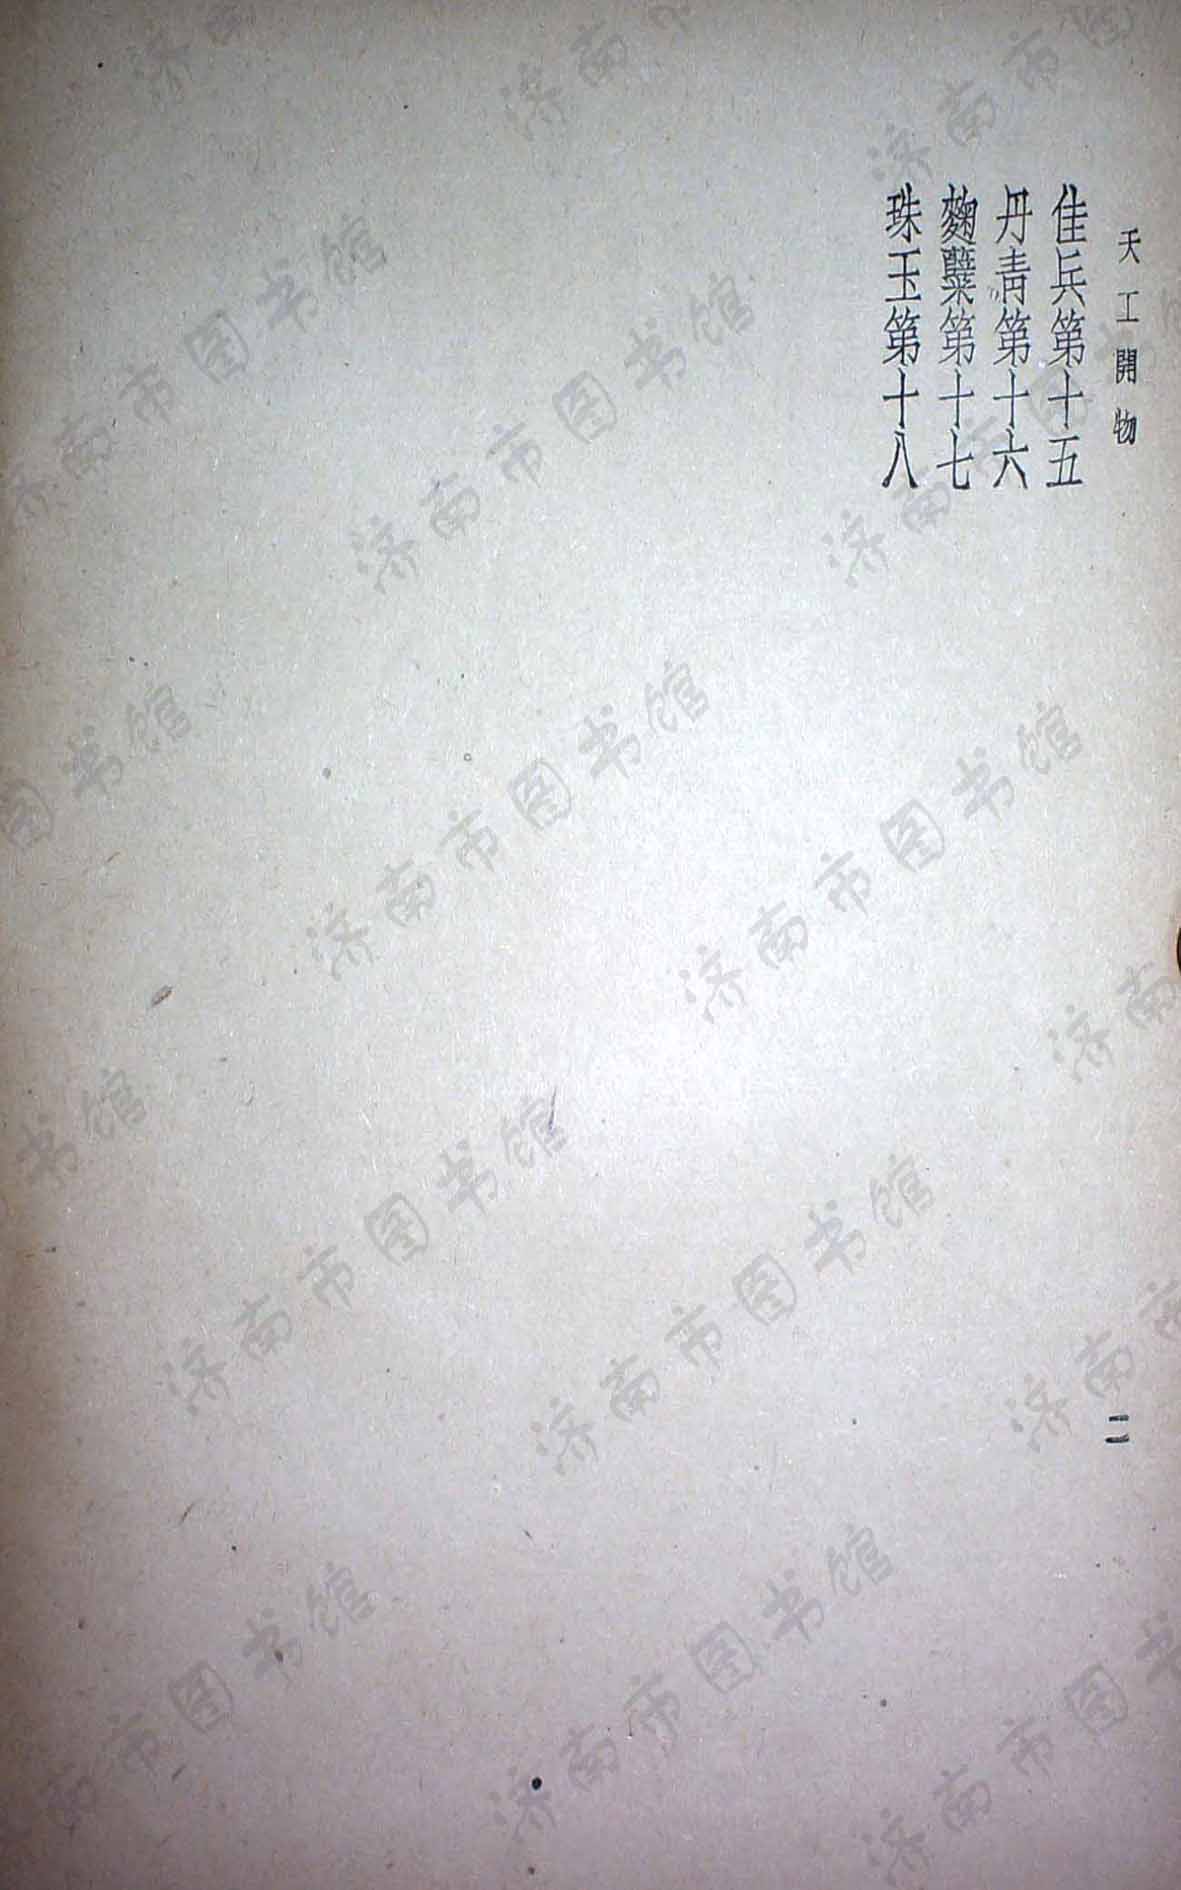 天工開物
佳兵第十五
丹靑第十六
麴櫱第十七
珠玉第十八
二
济南市图书馆